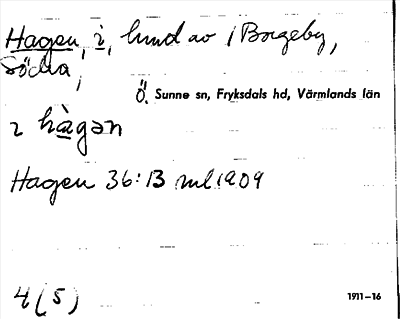 Hagen, i, hmd av / Borgeby,
Södra,
Ö. Sunne sn, Fryksdals hd, Värmlands län
ɩ hàgən
Hagen 36:13 ml 1909
4(5) 1911–16